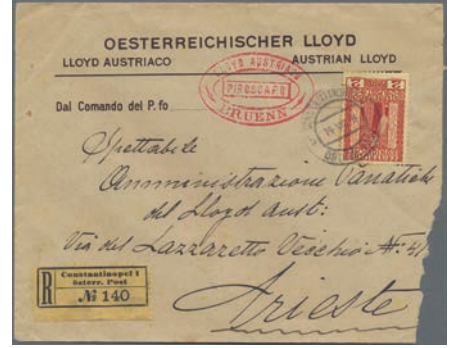 OESTERREICHISCHER LLOYD
LLOYD AUSTRIACO
AUSTRIAN LLOYD
LLOYD AUSTRIACO
PIROSCAFO
BRUENN
2
2
Dal Comando del P.fo
Spettabile
Amministrazione
del Lloyd Aust:
Via del Lazzaretto Vecchio No: 41
Trieste
R
Constantinopel 1
österr. Post
№ 140